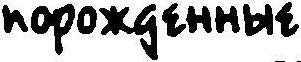 порожденные